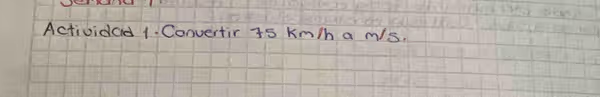 Actividad 1. Convertir 75 Km/h a m/s.